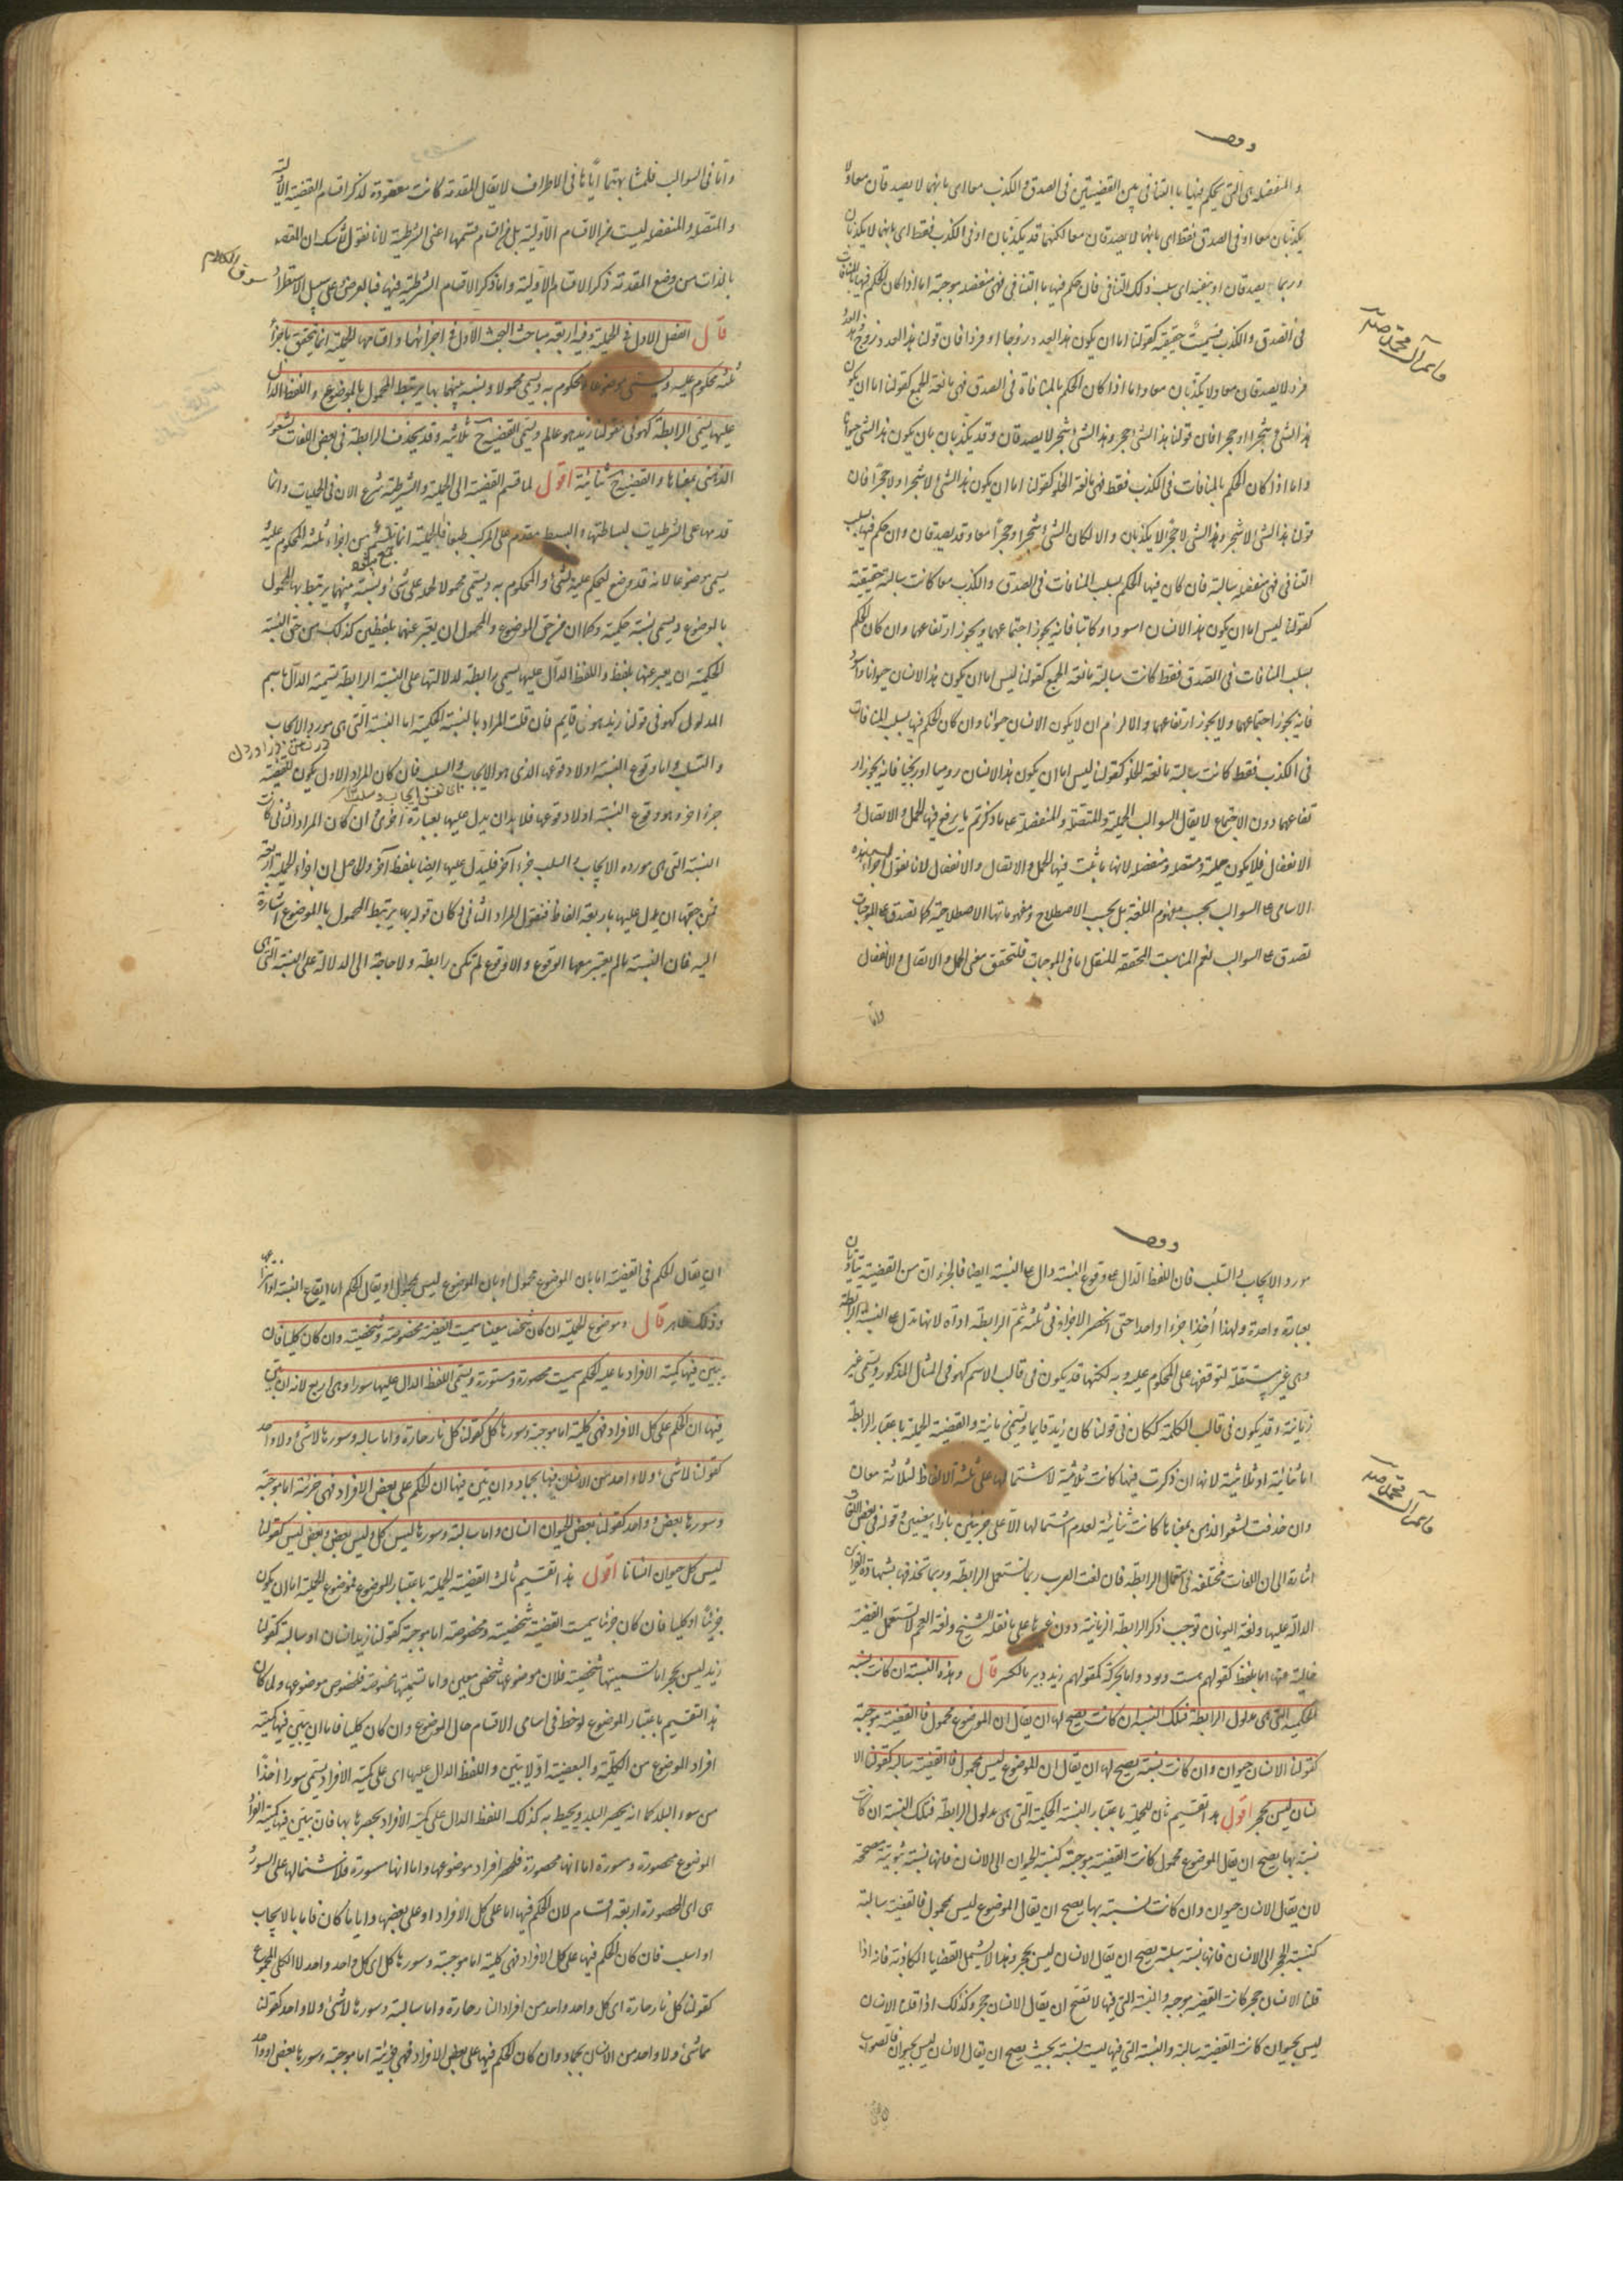 وقف
والمنفصلة هى التى يحكم فيها بالتنافى بين القضيتين فى الصدق والكذب معا اى بانهما لا يصدقان معا ولا
يكذبان معا او فى الصدق فقط اى بانهما لا يصدقان معا لكنهما قد يكذبان او فى الكذب فقط اى بانهما لا يكذبان
وربما يصدقان او بنفيه اى سلب ذلك التنافى فان حكم فيها بالتنافى فهى منفصلة موجبة اما اذا كان الحكم فيها بالمنافات
فى الصدق والكذب سميت حقيقية كقولنا اما ان يكون هذا العدد زوجا او فردا فان قولنا هذا العدد زوج وهذا العدد
فرد لا يصدقان معا ولا يكذبان معا واما اذا كان الحكم بالمنافاة فى الصدق فهى مانعة الجمع كقولنا اما ان يكون
هذا الشئ شجرا او حجرا فان قولنا هذا الشئ حجر وهذا الشئ شجر لا يصدقان وقد يكذبان بان يكون هذا الشئ حيوانا
واما اذا كان الحكم بالمنافات فى الكذب فقط فهى مانعة الخلو كقولنا اما ان يكون هذا الشئ لا شجرا ولا حجرا فان
قولنا هذا الشئ لا شجر وهذا الشئ لا حجر لا يكذبان والا لكان الشئ شجرا وحجرا معا وقد يصدقان وان حكم فيها بسلب
التنافى فهى منفصلة سالبة فان كان فيها الحكم بسلب المنافات فى الصدق والكذب معا كانت سالبة حقيقية
كقولنا ليس اما ان يكون هذا الانسان اسود او كاتبا فانه يجوز اجتماعهما ويجوز ارتفاعهما وان كان الحكم
بسلب المنافات فى الصدق فقط كانت سالبة مانعة الجمع كقولنا ليس اما ان يكون هذا الانسان حيوانا واسود
فانه يجوز اجتماعهما ولا يجوز ارتفاعهما والا لزم ان لا يكون الانسان حيوانا وان كان الحكم فيها بسلب المنافات
فى الكذب فقط كانت سالبة مانعة الخلو كقولنا ليس اما ان يكون هذا الانسان روميا او زنجيا فانه يجوز ار
تفاعهما دون الاجتماع لا يقال السوالب الحملية والمتصلة والمنفصلة على ما ذكرتم ما يرفع فيها الحمل والاتصال و
الانفصال فلا يكون حملية ومتصلة ومنفصلة لانها ما ثبت فيها الحمل والاتصال والانفصال لانا نقول اجراء هذه
الاسامى على السوالب بحسب مفهوم اللغة بل بحسب الاصطلاح ومفهوماتها الاصطلاحية كما تصدق على الموجبات
تصدق على السوالب نعم المناسبت المحققة للنقل اما فى الموجبات فلتحقق معنى الحمل والاتصال والانفصال
واما
واما فى السوالب فلمشابهتها اياها فى الاطراف لا يقال المقدمة كانت معقودة لذكر اقسام القضية الاولية
والمتصلة والمنفصلة ليست من الاقسام الاولية بل من اقسام قسمتها اعنى الشرطية لانا نقول لا شك ان المقصد
بالذات من وضع المقدمة ذكر الاقسام الاولية واما ذكر الاقسام الشرطية فيها فبالعرض على سبيل الاستطراد
سوق الكلام
قال الفصل الاول فى الحملية وفيه اربعة مباحث البحث الاول فى اجزائها واقسامها الحملية انما تتحقق باجزاء
ثلثة محكوم عليه ويسمى موضوعا ومحكوم به ويسمى محمولا ونسبة بينهما بها يرتبط المحمول بالموضوع واللفظ الدال
عليها يسمى الرابطة كهو فى قولنا زيد هو عالم ويسمى القضية ح ثلاثية وقد يحذف الرابطة فى بعض اللغات لشعور
الذهن بمعناها والقضية ح ثنائية اقول لما قسم القضية الى الحملية والشرطية شرع الان فى الحمليات وانما
قدمها على الشرطيات لبساطتها والبسيط مقدم على المركب طبعا فالحملية انما تلتئم من اجزاء ثلثة المحكوم عليه
يسمى موضوعا لانه قد وضع ليحكم عليه بشئ والمحكوم به ويسمى محمولا لحمله على شئ ونسبة بينهما يرتبط بها المحمول
بالموضوع ويسمى نسبة حكمية وكما ان من حق الموضوع والمحمول ان يعبر عنهما بلفظين كذلك من حق النسبة
الحكمية ان يعبر عنها بلفظ واللفظ الدال عليها يسمى رابطة لدلالتها على النسبة الرابطة تسمية الدال باسم
المدلول كهو فى قولنا زيد هو قايم فان قلت المراد بالنسبة الحكمية اما النسبة التى هى مورد الايجاب
والسلب واما وقوع النسبة او لا وقوعها الذى هو الايجاب والسلب فان كان المراد الاول يكون للقضية
جزء اخر وهو وقوع النسبة او لا وقوعها فلا بد ان يدل عليها بعبارة اخرى وان كان المراد الثانى كانت
النسبة التى هى مورد الايجاب والسلب جزءا آخر فليدل عليها ايضا بلفظ آخر والحاصل ان اجزاء الحملية اربعة
فمن حقها ان يدل عليها باربعة الفاظ فنقول المراد الثانى وكان قوله بها يرتبط المحمول بالموضوع اشارة
اليه فان النسبة ما لم يعتبر معها الوقوع واللاوقوع لم تكن رابطة ولا حاجة الى الدلالة على النسبة التى هى
وقف
مورد الايجاب والسلب فان اللفظ الدال على وقوع النسبة دال على النسبة ايضا فالجزءان من القضية يتاديان
بعبارة واحدة ولهذا أخذا جزءا واحدا حتى انحصر الاجزاء فى ثلثة ثم الرابطة اداة لانها تدل على النسبة الرابطة
وهى غير مستقلة لتوقفها على المحكوم عليه وبه لكنها قد يكون فى قالب الاسم كهو فى المثال المذكور ويسمى غير
زمانية وقد يكون فى قالب الكلمة ككان فى قولنا كان زيد قايما ويسمى زمانية والقضية الحملية باعتبار الرابطة
اما ثنائية او ثلاثية لانها ان ذكرت فيها كانت ثلاثية لاشتمالها على ثلثة الالفاظ لثلاثة معان
وان حذفت لشعور الذهن بمعناها كانت ثنائية لعدم اشتمالها الا على جزئين بازاء معنيين وقوله فى بعض اللغات
اشارة الى ان اللغات مختلفة فى استعمال الرابطة فان لغت العرب ربما تستعمل الرابطة وربما تحذفها بشهادة القراين
الدالة عليها ولغة اليونان توجب ذكر الرابطة الزمانية دون غيرها على ما نقله الشيخ ولغة العجم لا تستعمل القضية
خالية عنها اما بلفظ كقولهم هست وبود واما بحركة كقولهم زيد دبير بالكسر قال وهذه النسبة ان كانت نسبة
الحكمية التى هى مدلول الرابطة فتلك النسبة ان كانت يصح لها ان يقال ان الموضوع محمول فالقضية موجبة
كقولنا الانسان حيوان وان كانت نسبة يصح لها ان يقال ان الموضوع ليس بمحمول فالقضية سالبة كقولنا الا
نسان ليس بحجر اقول هذا تقسيم ثان للحملية باعتبار النسبة الحكمية التى هى مدلول الرابطة فتلك النسبة ان كانت
نسبة بها يصح ان يقال الموضوع محمول كانت القضية موجبة كنسبة الحيوان الى الانسان فانها نسبة ثبوتية مصححة
لان يقال الانسان حيوان وان كانت نسبة بها يصح ان يقال الموضوع ليس بمحمول فالقضية سالبة
كنسبة الحجر الى الانسان فانها نسبة سلبية يصح ان يقال الانسان ليس بحجر وهذا لا يشمل القضايا الكاذبة فانه اذا
قلنا الانسان حجر كانت القضية موجبة والنسبة التى فيها لا تصح ان يقال الانسان حجر وكذلك اذا قلنا الانسان
ليس بحيوان كانت القضية سالبة والنسبة التى فيها ليست نسبة بحيث يصح ان يقال الانسان ليس بحيوان فالصواب
ان يقال الحكم فى القضية اما بان الموضوع محمول او بان الموضوع ليس بمحمول او يقال الحكم اما ايقاع النسبة او انتزاعها
وذلك ظاهر قال وموضوع الحملية ان كان شخصا معينا سميت القضية مخصوصة وشخصية وان كان كليا فان
بين فيها كمية الافراد ما عليه الحكم سميت محصورة ومسورة ويسمى اللفظ الدال عليها سورا وهى اربع لانه ان بين
فيها ان الحكم على كل الافراد فهى كلية اما موجبة وسورها كل كقولنا كل نار حارة واما سالبة وسورها لا شئ ولا واحد
كقولنا لا شئ ولا واحد من الانسان بجماد وان بين فيها ان الحكم على بعض الافراد فهى جزئية اما موجبة
وسورها بعض وواحد كقولنا بعض الحيوان انسان واما سالبة وسورها ليس كل وليس بعض وبعض ليس كقولنا
ليس كل حيوان انسانا اقول هذا تقسيم ثالث القضية الحملية باعتبار الموضوع فموضوع الحملية اما ان يكون
جزئيا او كليا فان كان جزئيا سميت القضية شخصية ومخصوصة اما موجبة كقولنا زيد انسان او سالبة كقولنا
زيد ليس بحجر اما تسميتها شخصية فلان موضوعها شخص معين واما تسميتها مخصوصة فلخصوص موضوعها ولما كان
هذا التقسيم باعتبار الموضوع لوحظ فى اسامى الاقسام حال الموضوع وان كان كليا فاما ان يبين فيها كمية
افراد الموضوع من الكلية والبعضية او لا يبين واللفظ الدال عليها اى على كمية الافراد يسمى سورا اخذا
من سور البلد كما انه يحصر البلد ويحيط به كذلك اللفظ الدال على كمية الافراد يحصرها بها فان بين فيها كمية افراد
الموضوع محصورة ومسورة اما انها محصورة فلحصر افراد موضوعها واما انها مسورة فلاشتمالها على السور
هى اى المحصورة اربعة اقسام لان الحكم فيها اما على كل الافراد او على بعضها وايا ما كان فاما بالايجاب
او السلب فان كان الحكم فيها على كل الافراد فهى كلية اما موجبة وسورها كل اى كل واحد واحد لا الكل المجموع
كقولنا كل نار حارة اى كل واحد واحد من افراد النار حارة واما سالبة وسورها لا شئ ولا واحد كقولنا
لا شئ ولا واحد من الانسان بجماد وان كان الحكم فيها على بعض الافراد فهى جزئية اما موجبة وسورها بعض وواحد